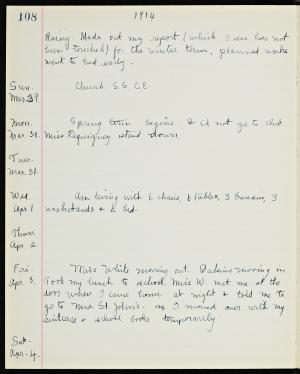 108
1914
Rainy. Made out my report (which I see has not
been touched) for the winter term, planned work
went to bed early.
Sun.
Mar. 29.
Church. S.S. C.E.
Mon.
Mar. 30.
Spring term begins. I did not go to Club
Miss stairs down.
Tues.
Mar. 31.
Wed.
Apr. 1.
Am living with 6 chairs, 6 tables, 3 bureaus, 3
washstands & a bed.
Thurs.
Apr. 2.
Fri.
Apr. 3.
Miss White moving out. moving in
Took my lunch to school. Miss W. met me at the
door when I came home at night & told me to
go to Mrs. St. John's. so I moved over with my
suitcase & school books temporarily
Sat.
Apr. 4.